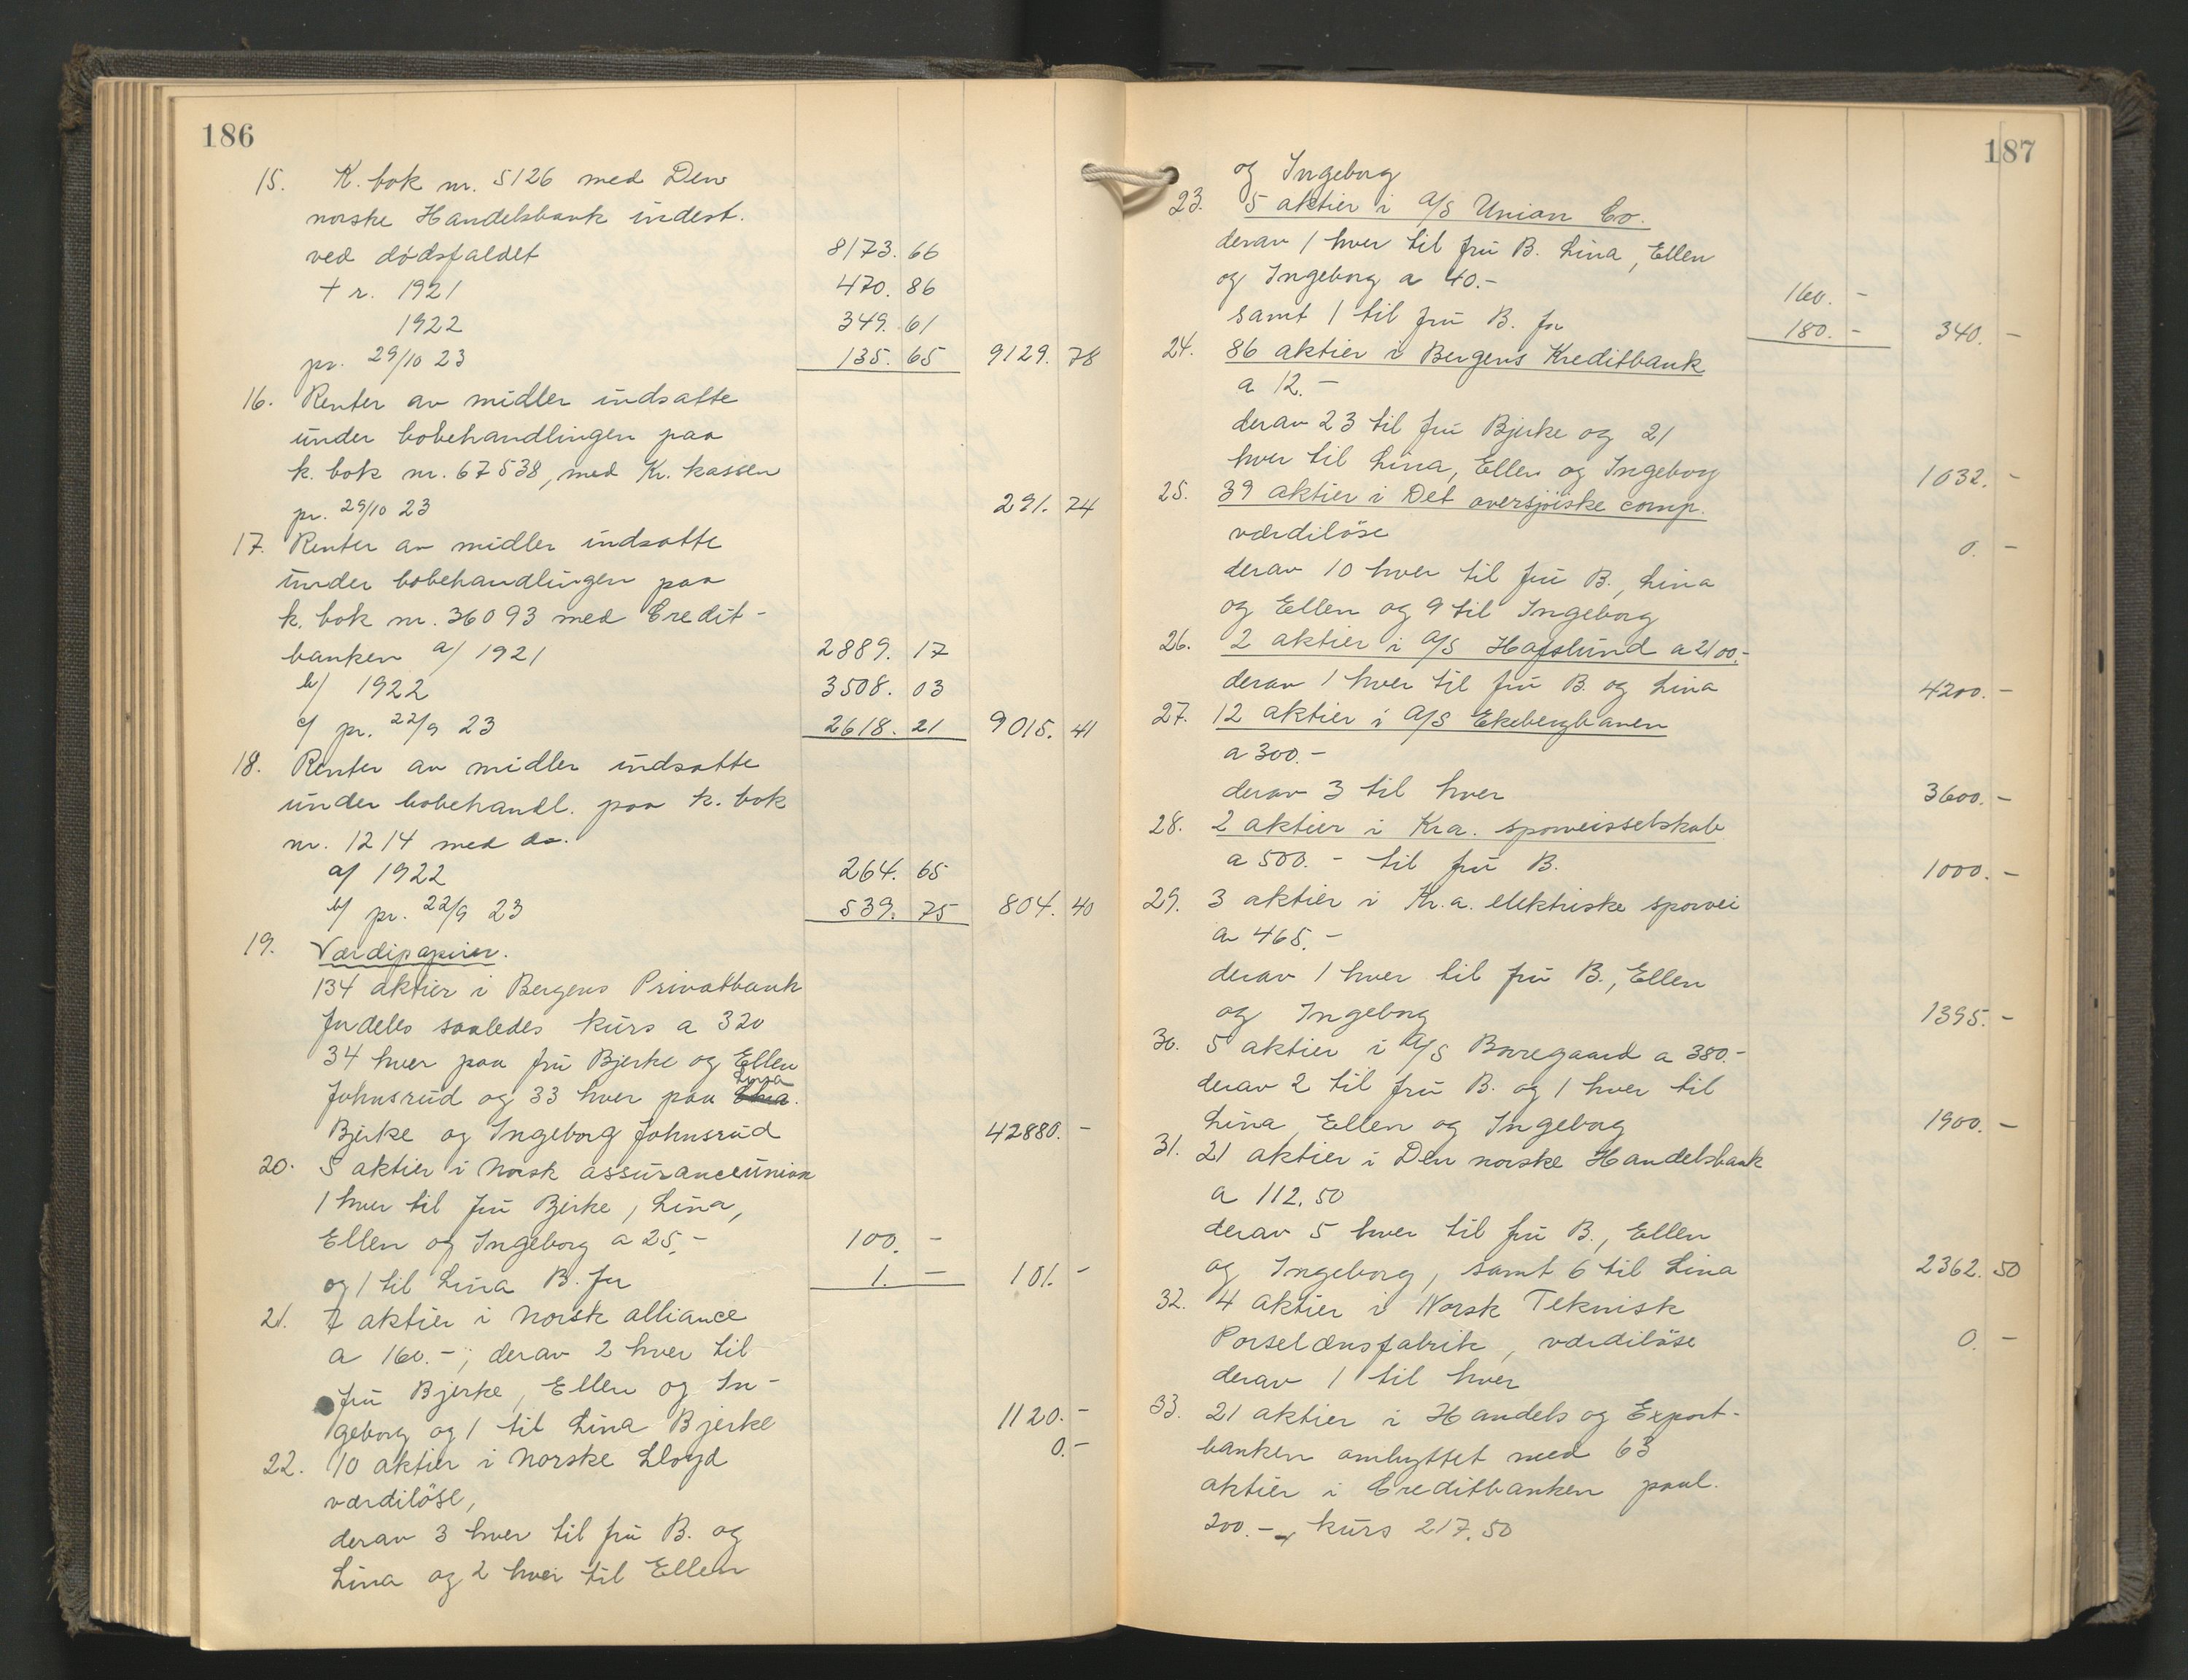 186
15. K. bok nr. 5126 med Den
norske Handelsbank indest.
ved dödsfaldet 8173. 66
+ r. 1921 470. 86
1922 349. 61
pr. 29/10 23 135. 65 9129. 78
16. Renter av midler indsatte
under bobehandlingen paa
k. bok nr. 67538, med Kr. kassen
pr. 29/10 23 291. 74
17. Renter av midler indsatte
under bobehandlingen paa
k. bok nr. 36093 med Credit-
banken a/ 1921 2889. 17
b/ 1922 3508. 03
c/ pr. 22/9 23 2618. 21 9015. 41
18. Renter av midler indsatte
under bobehandl. paa k. bok
nr. 1214 med do.
a/ 1922 264. 65
b/ pr. 22/9 23 539. 75 804. 40
19. Værdipapirer.
134 aktier i Bergens Privatbank
fordeles saaledes kurs a 320
34 hver paa fru Bjerke og Ellen
Johnsrud og 33 hver paa Lina
Bjerke og Ingeborg Johnsrud 42880. -
20. 5 aktier i Norsk assuranceunion
1 hver til fru Bjerke, Lina,
Ellen og Ingeborg a 25,- 100. -
og 1 til Lina B. for 1. - 101. -
21. 7 aktier i Norsk alliance
a 160.-; derav 2 hver til
fru Bjerke, Ellen og In-
geborg og 1 til Lina Bjerke 1120. -
22. 10 aktier i Norske Lloyd 0.-
værdilöse,
derav 3 hver til fru B. og
Lina og 2 hver til Ellen
187
og Ingeborg
23. 5 aktier i A/S Union Co.
derav 1 hver til fru B. Lina, Ellen
og Ingeborg a 40.- 160. -
samt 1 til fru B. for 180. - 340. -
24. 86 aktier i Bergens Kreditbank
a 12.-
derav 23 til fru Bjerke og 21
hver til Lina, Ellen og Ingeborg 1032. -
25. 39 aktier i Det oversjöiske comp.
værdilöse 0. -
derav 10 hver til fru B., Lina
og Ellen og 9 til Ingeborg
26. 2 aktier i A/S Hafslund a 2100.-
derav 1 hver til fru B. og Lina 4200. -
27. 12 aktier i A/S Ekebergbanen
a 300.-
derav 3 til hver 3600. -
28. 2 aktier i Kra. sporveisselskab
a 500.- til fru B. 1000. -
29. 3 aktier i Kr.a. elektriske sporvei
a 465.-
derav 1 hver til fru B., Ellen
og Ingeborg 1395. -
30. 5 aktier i A/S Borregaard a 380.-
derav 2 til fru B. og 1 hver til
Lina, Ellen og Ingeborg 1900. -
31. 21 aktier i Den norske Handelsbank
a 112.50
derav 5 hver til fru B., Ellen
og Ingeborg, samt 6 til Lina 2362. 50
32. 4 aktier i Norsk Teknisk
Porselænsfabrik, værdilöse 0. -
derav 1 til hver
33. 21 aktier i Handels og Export-
banken ombyttet med 63
aktier i Creditbanken paal.
200.- kurs 217.50